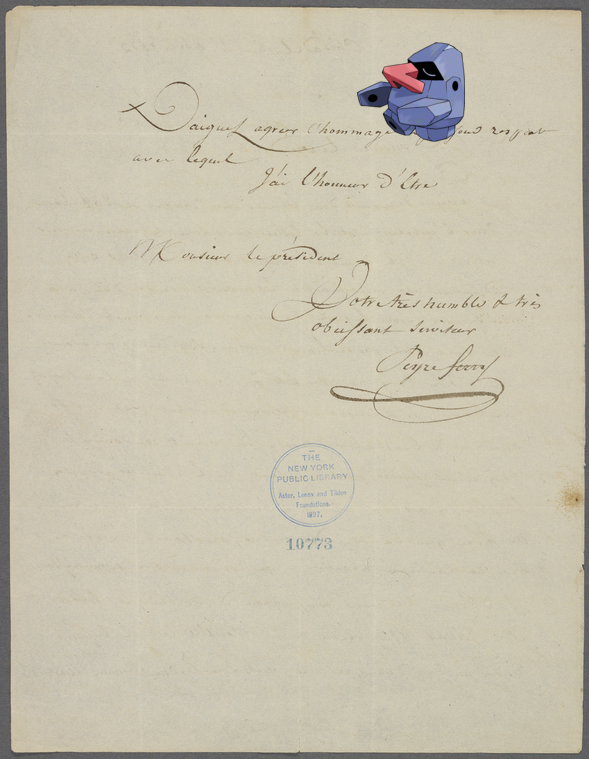 Daignez agréer l'hommage profond respect
avec lequel
J'ai l'honneur d'Etre
Monsieur le président
Votre très humble & très
obéissant serviteur
THE
NEW YORK
PUBLIC LIBRARY
Astor, Lenox and Tilden
Foundations.
1897.
10773